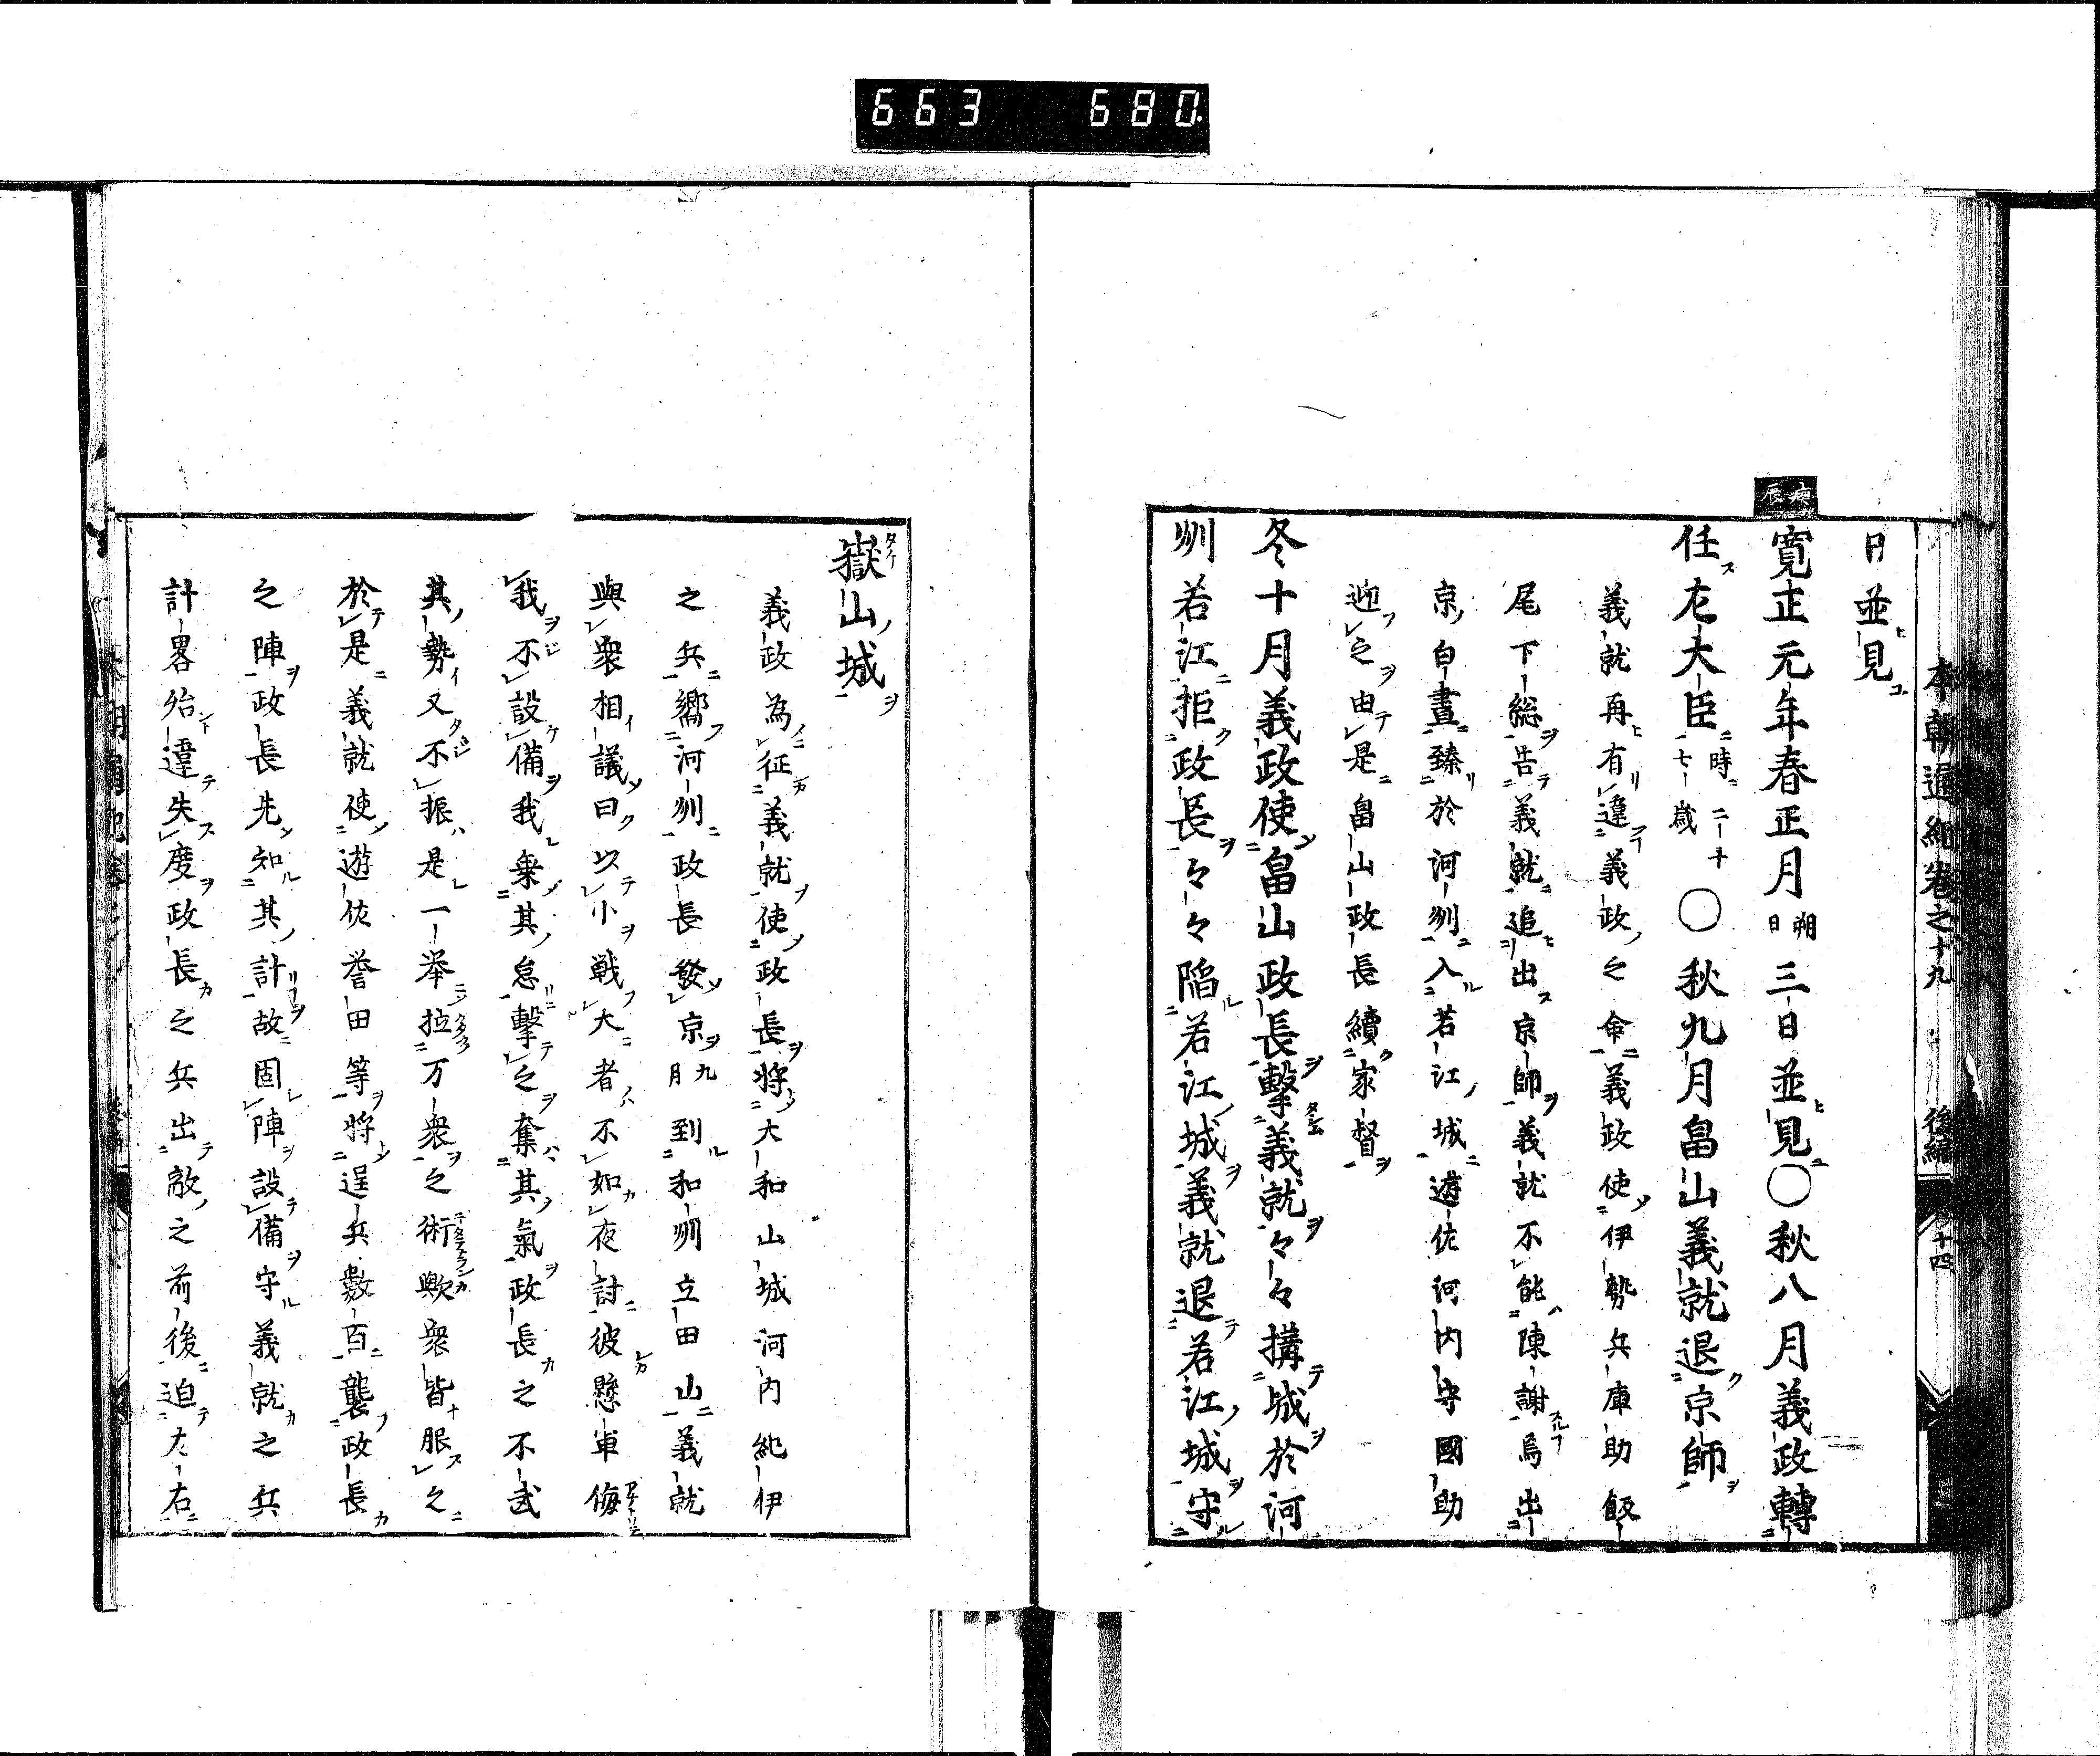 663 680
本朝通紀卷之十九 後編 十四
日並見
庚辰
寛正元年春正月朔日三日並見〇秋八月義政轉
任左大臣時二十七歳〇秋九月畠山義就退京師
義就再有違義政之命義政使伊勢兵庫助飯
尾下総告義就追出京師義就不能陳謝烏出
京白晝臻於河刕入若江城遊佐河内守國助
迎之由是畠山政長續家督
冬十月義政使畠山政長擊義就々々搆城於河
刕若江拒政長々々陷若江城義就退若江城守
嶽山城
義政為征義就使政長將大和山城河内紀伊
之兵嚮河刕政長發京九月到和刕立田山義就
與衆相議曰以小戦大者不如夜討彼懸軍侮
我不設備我乗其怠擊之奪其氣政長之不武
其勢又不振是一举拉万衆之術歟衆皆服之
於是義就使遊佐誉田等將逞兵數百襲政長
之陣政長先知其計故固陣設備守義就之兵
計畧殆違失度政長之兵出敵之前後迫左右